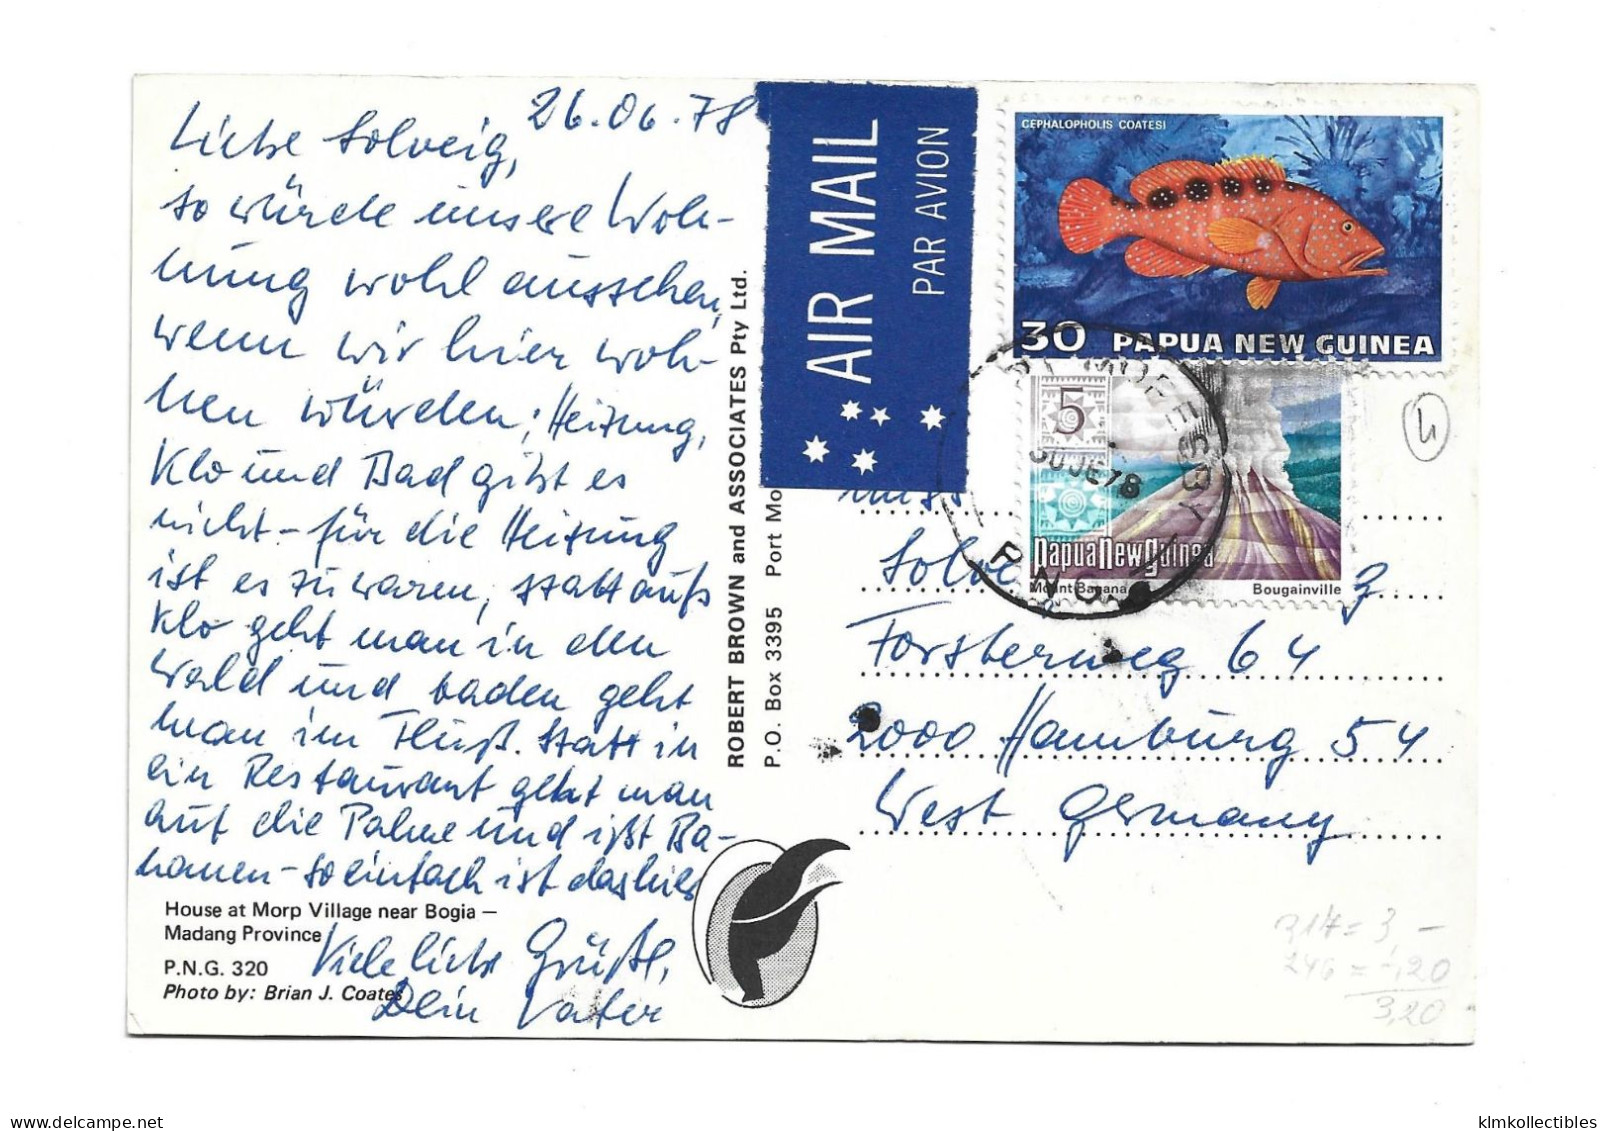 26.06.78
Liebe Solveig,
so würde unsere Woh-
nung wohl aussehen,
wenn wir hier woh-
nen würden; Heizung,
Klo und Bad gibt es
nicht - für die Heizung
ist es zu warm, statt aufs
Klo geht man in den
Wald und baden geht
man im Fluß. Statt in
ein Restaurant geht man
auf die Palme und ißt Ba-
nanen - so einfach ist das hier
Viele liebe Grüße,
Dein Vater
House at Morp Village near Bogia —
Madang Province
P.N.G. 320
Photo by: Brian J. Coates
ROBERT BROWN and ASSOCIATES Pty Ltd.
P.O. Box 3395 Port Mo
AIR MAIL
PAR AVION
CEPHALOPHOLIS COATESI
30 PAPUA NEW GUINEA
5
Papua New Guinea
Mount Bagana
Bougainville
PT MORESBY
30 JE 78
P.N.G.
4
Miss
Solve g
Forsterweg 64
2000 Hamburg 54
West Germany
317 = 3,-
246 = -,20
3,20
klmkollectibles
delcampe.net